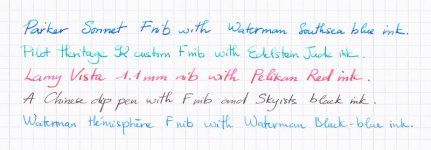 Parker Sonnet F nib with Waterman Southsea blue ink.
Pilot Heritage custom F nib with Edelstein Jade ink.
Lamy Vista 1.1mm nib with Pelikan Red ink.
A Chinese dip pen with F nib and Skyists black ink.
Waterman Hémisphère F nib with Waterman Black-blue ink.